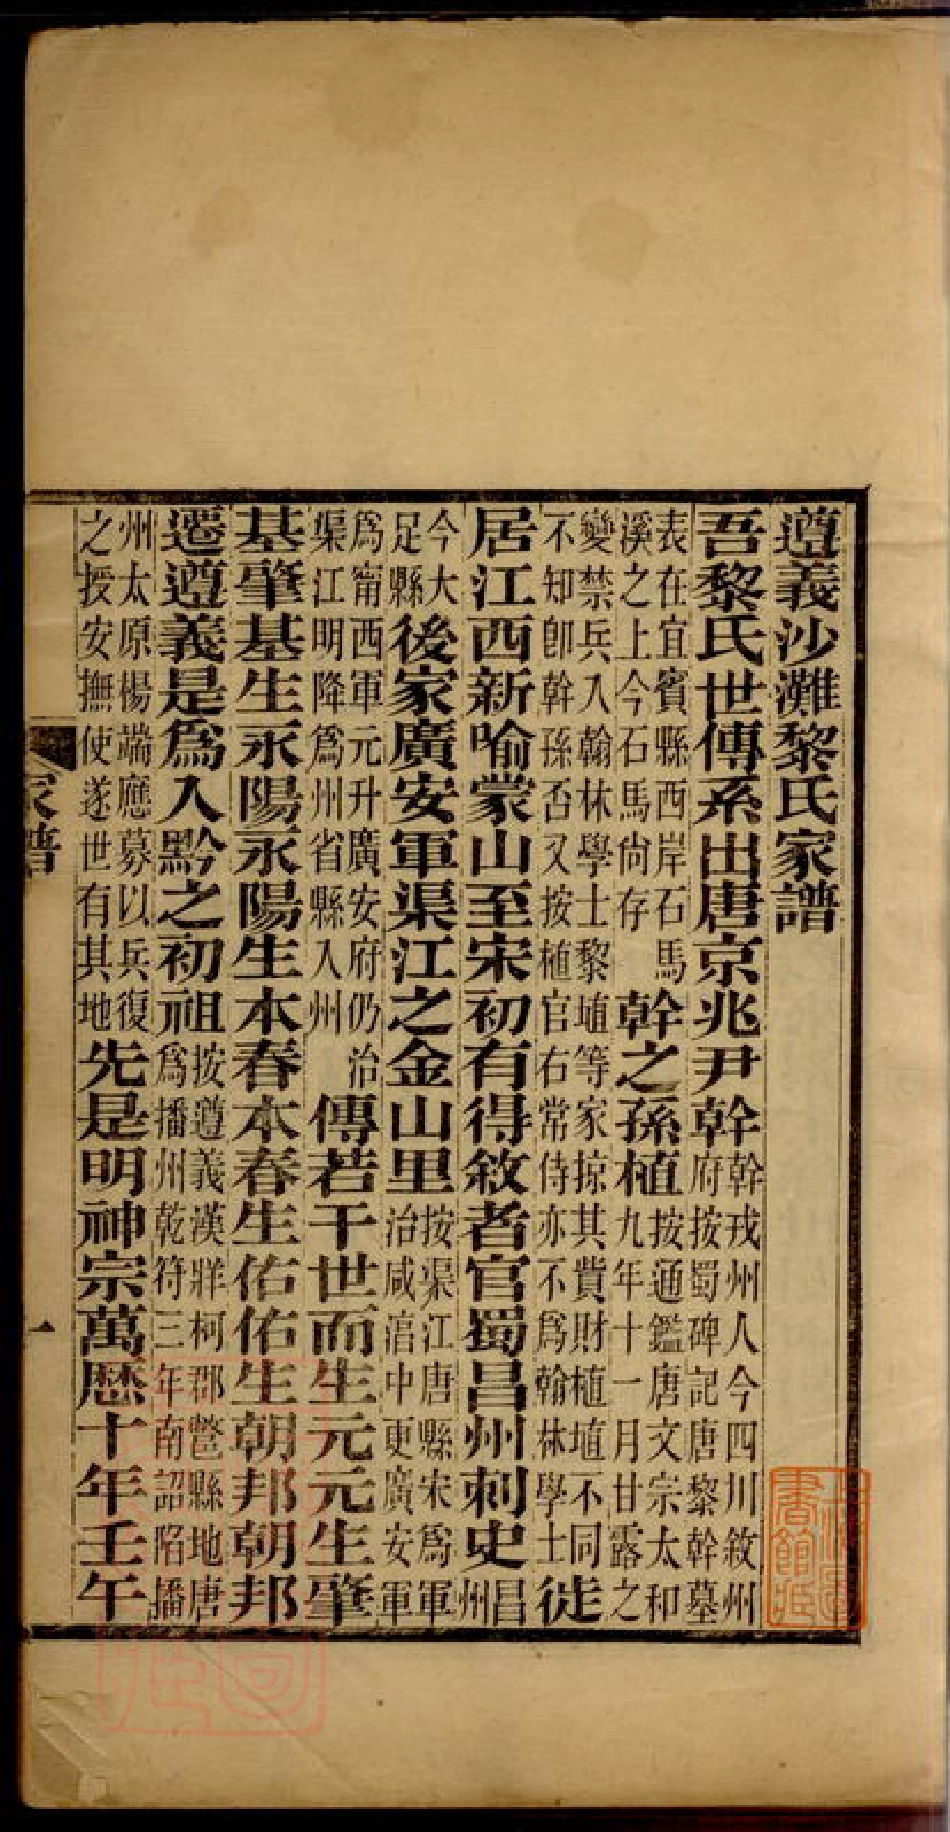 遵義沙灘黎氏家譜
吾黎氏世傳系出唐京兆尹幹幹戎州人今四川敘州府按蜀碑記唐黎幹墓
表在宜賓縣西岸石馬溪之上今石馬尚存幹之孫植按通鑑唐文宗太和九年十一月甘露之
變禁兵入翰林學士黎埴等家掠其貲財植埴不同不知卽幹孫否又按植官右常侍亦不爲翰林學士徙
居江西新喻蒙山至宋初有得敘者官蜀昌州刺史昌州
今大足縣後家廣安軍渠江之金山里按渠江唐縣宋爲軍治咸湻中更廣安軍
爲甯西軍元升廣安府仍治渠江明降爲州省縣入州傳若干世而生元元生肇
基肇基生永陽永陽生本春本春生佑佑生朝邦朝邦
遷遵義是爲入黔之初祖按遵義漢牂柯郡鄨縣地唐爲播州乾符三年南詔陷播
州太原楊端應募以兵復之授安撫使遂世有其地先是明神宗萬歷十年壬午
家譜
一